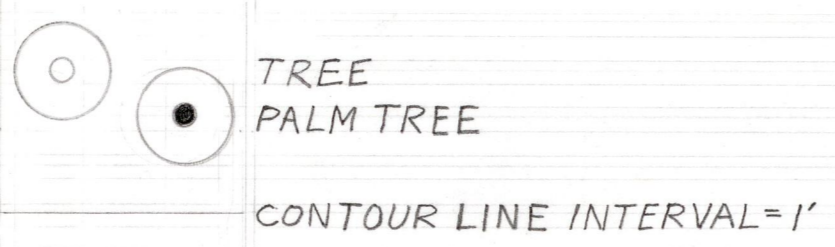 TREE
PALM TREE
CONTOUR LINE INTERVAL = 1'